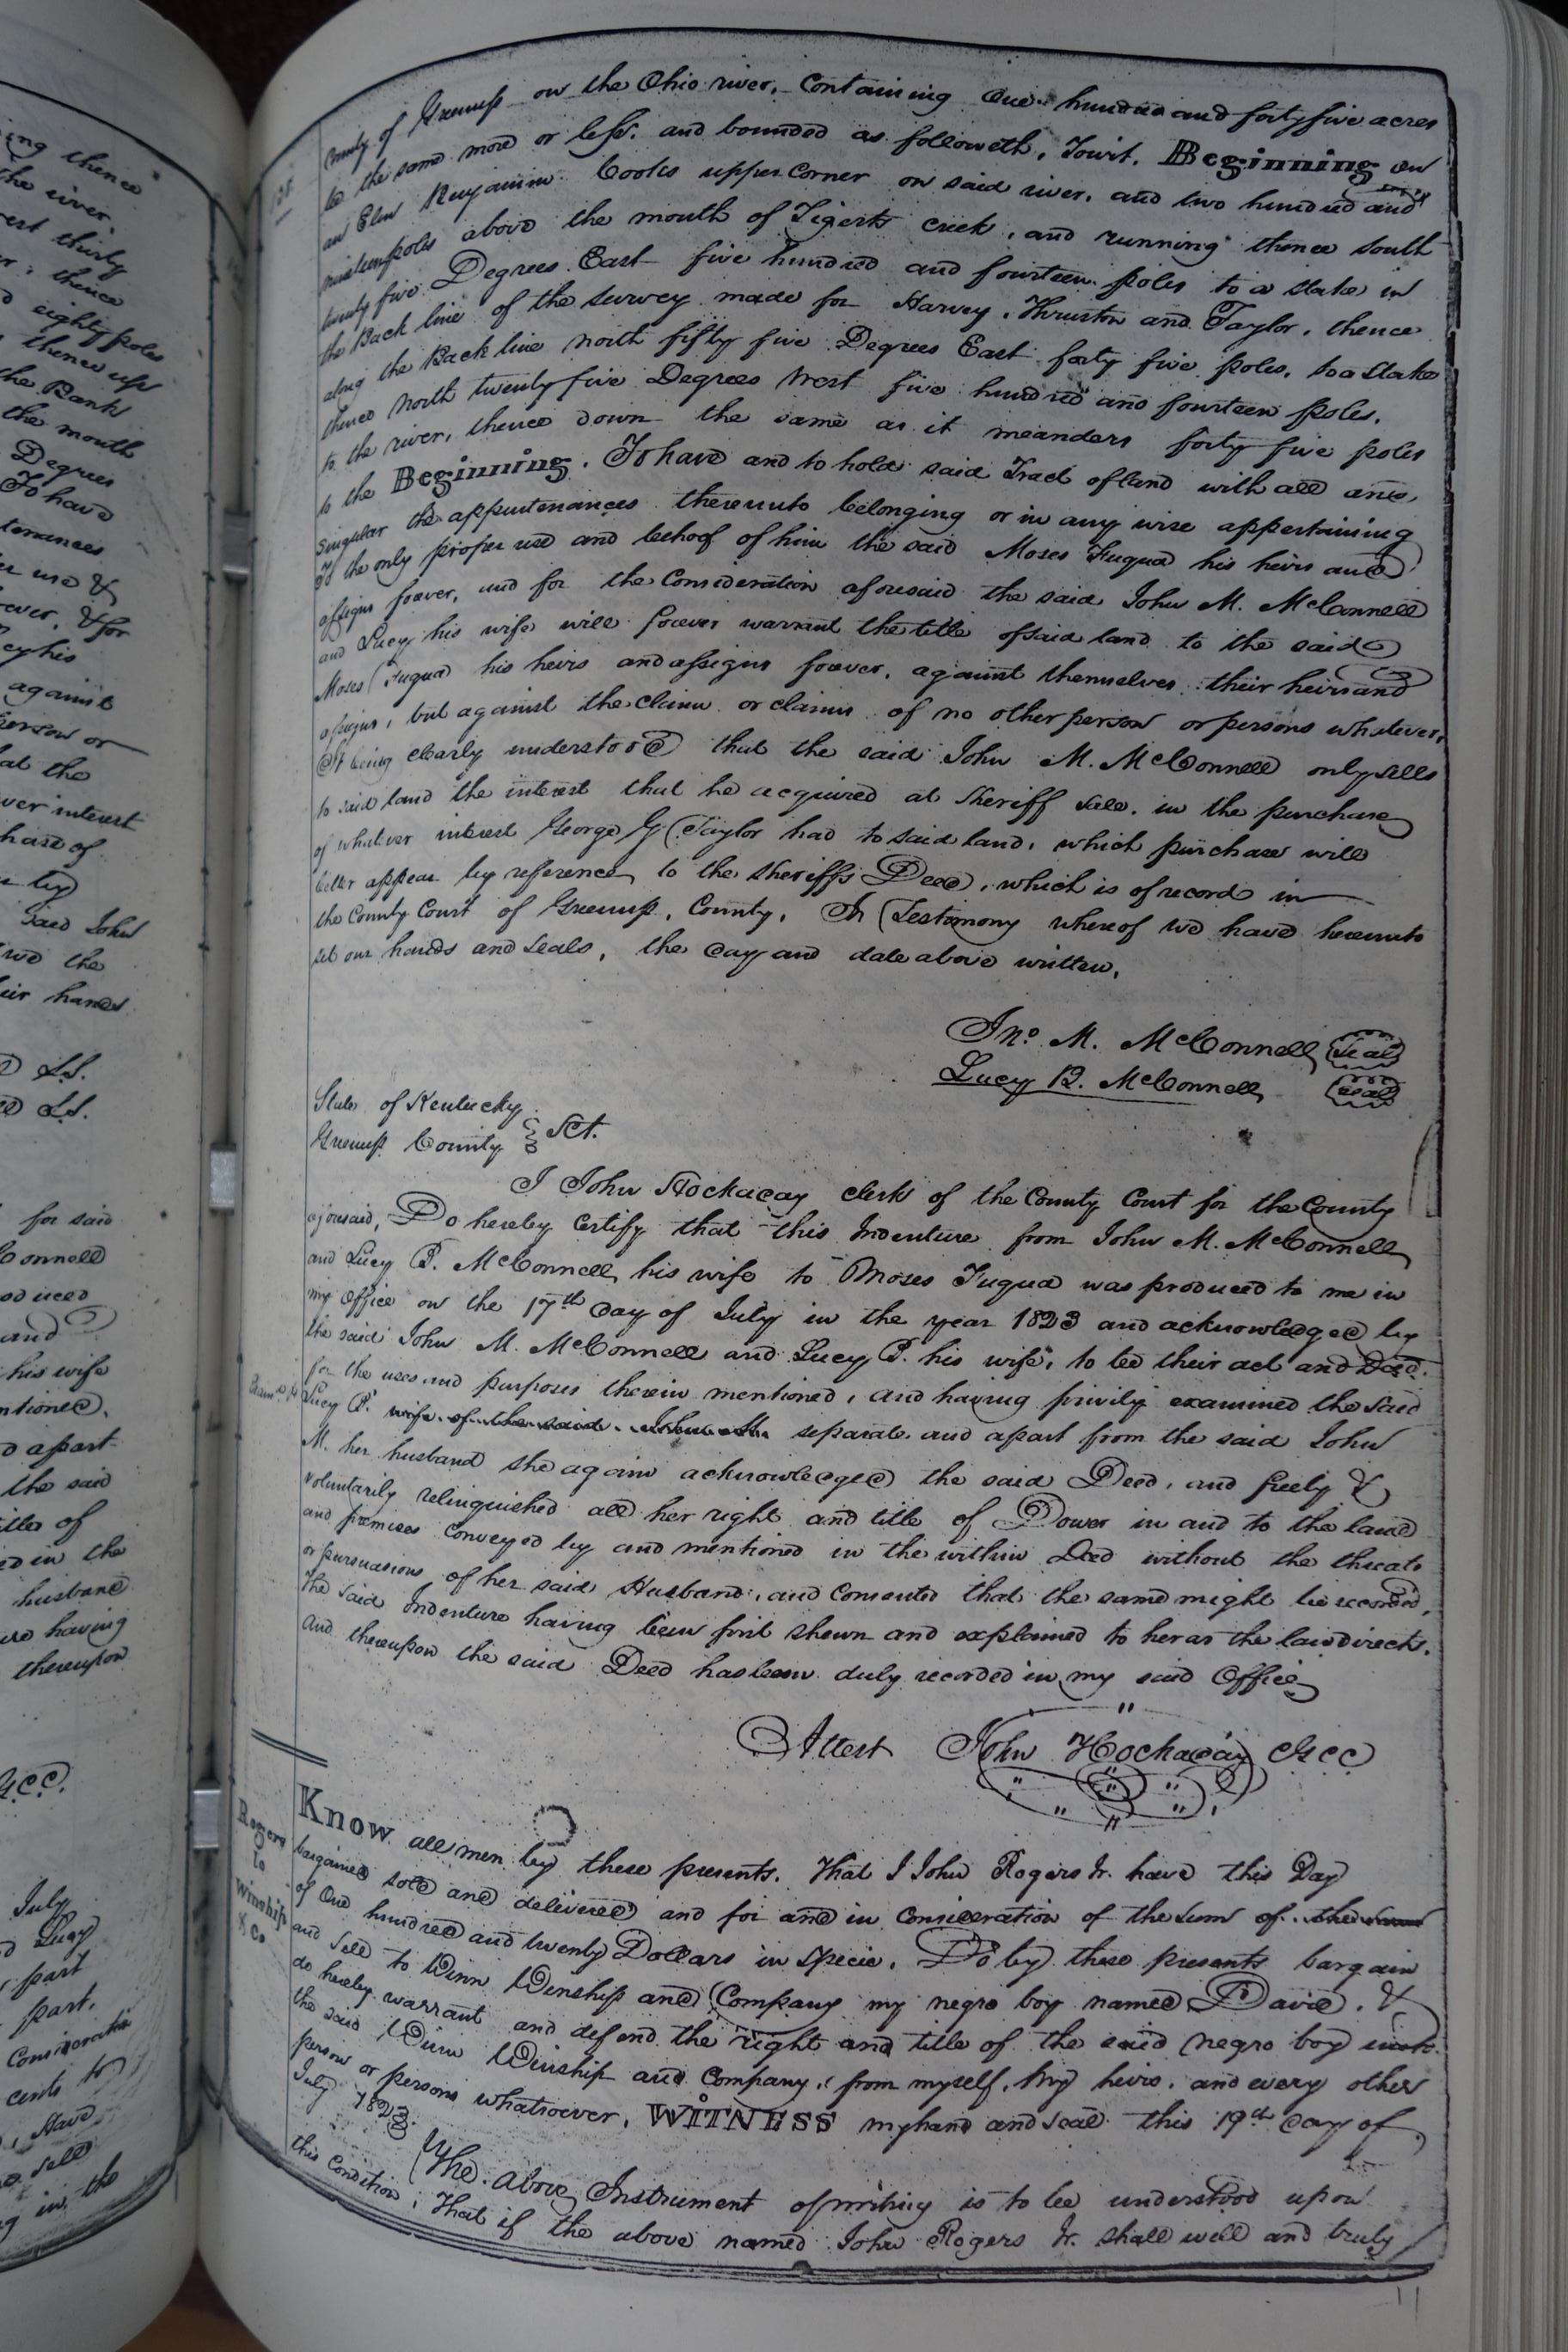 ing thence
the river,
rest thirty
thence
eighty poles
thence up
the Bank
the mouth
Degrees
To have
tenances
use &
ever, & for
cy his
against
person or
at the
ver interest
chase of
by
said John
we the
their hands
L.S.
L.S.
for said
Connell
oduced
and
his wife
ntioned,
d apart
the said
title of
ed in the
husband
having
thereupon
G.C.C.
July
Lucy
part
part,
Consideratio
cents to
have
sell
in the
County of Greenup on the Ohio river, Containing One hundred and forty five acres
be the same more or less, and bounded as followeth, Towit, Beginning on
an Elm Benjamin Cooks upper corner on said river, and two hundred and
nineteen poles above the mouth of Tigerts creek, and running thence South
twenty five Degrees East five hundred and fourteen poles to a stake in
the Back line of the survey made for Harvey, Thruston and Taylor, thence
along the Back line north fifty five Degrees East forty five poles, to a stake
thence North twenty five Degrees West five hundred and fourteen poles,
to the river, thence down the same as it meanders forty five poles
to the Beginning. To have and to hold said Tract of land with all and,
singular the appurtenances thereunto belonging or in any wise appertaining
To the only proper use and behoof of him the said Moses Fuqua his heirs and
assigns forever, and for the Consideration aforesaid the said John M. McConnell
and Lucy his wife will forever warrant the title of said land to the said
Moses Fuqua his heirs and assigns forever, against themselves their heirs and
assigns, but against the claim or claims of no other person or persons whatever,
It being clearly understood that the said John M. McConnell only sells
to said land the interest that he acquired at Sheriff sale, in the purchase
of whatever interest George G Taylor had to said land, which purchase will
better appear by reference to the Sheriffs Deed, which is of record in
the County Court of Greenup, County, In Testimony whereof we have hereunto
set our hands and seals, the day and date above written,
Jno. M. McConnell Seal
Lucy B. McConnell Seal
State of Kentucky
Greenup County } Sct.
I John Hockaday clerk of the County Court for the County
aforesaid, Do hereby Certify that this Indenture from John M. McConnell
and Lucy B. McConnell his wife to Moses Fuqua was produced to me in
my Office on the 17th day of July in the year 1823 and acknowledged by
the said John M. McConnell and Lucy B. his wife, to be their act and Deed.
for the uses and purposes therein mentioned, and having privily examined the said
Lucy B. wife of the said John M. separate and apart from the said John
M. her husband she again acknowledged the said Deed, and freely &
voluntarily relinquished all her right and title of Dower in and to the land
and premises conveyed by and mentioned in the within Deed without the threats
or persuasions of her said Husband, and Consented that the same might be recorded,
The said Indenture having been first shewn and explained to her as the law directs.
And thereupon the said Deed has been duly recorded in my said Office
Attest John Hockaday GCC
Rogers
to
Winship
& Co
Know all men by these presents. That I John Rogers Jr. have this Day
bargained sold and delivered and for and in Consideration of the sum of the sum
of One hundred and twenty Dollars in Specie, Do by these presents bargain
and sell to Winn Winship and Company my negro boy named David, &
do hereby warrant and defend the right and title of the said negro boy unto
the said Winn Winship and Company, from myself, my heirs, and every other
person or persons whatsoever, WITNESS my hand and seal this 19th day of
July 1823.
The above Instrument of writing is to be understood upon
this Condition, That if the above named John Rogers Jr. shall well and truly